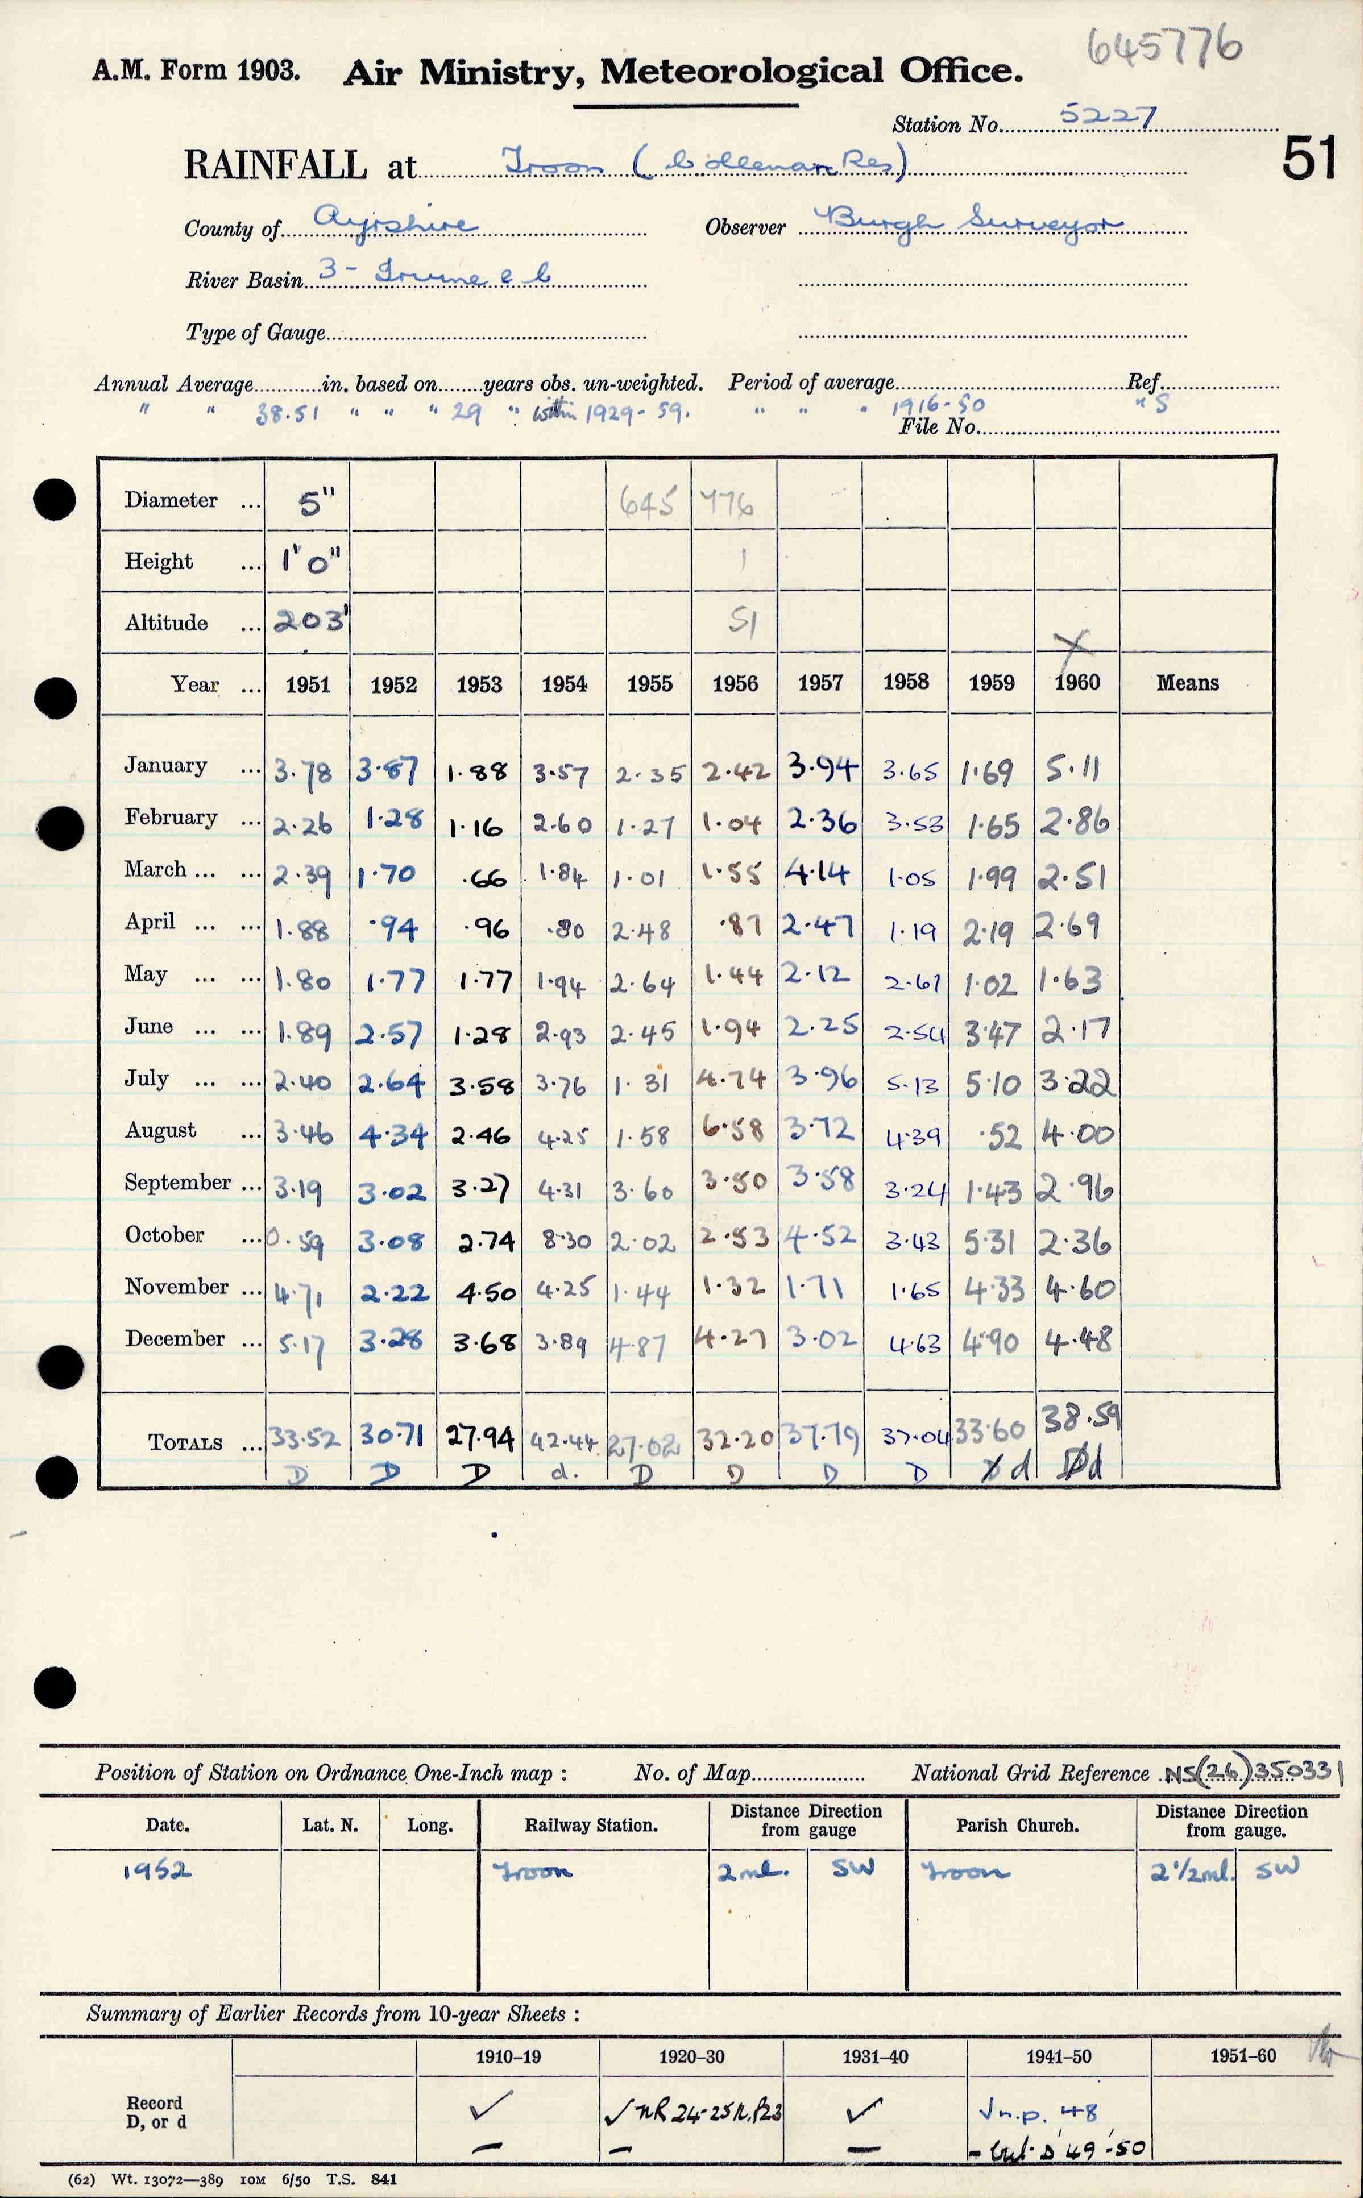 645776
A.M. Form 1903. Air Ministry, Meteorological Office.
Station No. 5227
51
RAINFALL at Troon (Collenan Res)
County of Ayrshire Observer Burgh Surveyor
River Basin 3 - Irvine & C
Type of Gauge
Annual Average in. based on years obs. un-weighted. Period of average Ref.
" " 38.51 " " " 29 " within 1929-59. " " " 1916-50 " S
File No.
Diameter ... 5" 645 776
Height ... 1' 0" 1
Altitude ... 203' 51
X
Year ... 1951 1952 1953 1954 1955 1956 1957 1958 1959 1960 Means
January ... 3.78 3.87 1.88 3.57 2.35 2.42 3.94 3.65 1.69 5.11
February ... 2.26 1.28 1.16 2.60 1.27 1.04 2.36 3.53 1.65 2.86
March ... ... 2.39 1.70 .66 1.84 1.01 1.55 4.14 1.05 1.99 2.51
April ... ... 1.88 .94 .96 .80 2.48 .87 2.47 1.19 2.19 2.69
May ... ... 1.80 1.77 1.77 1.94 2.64 1.44 2.12 2.61 1.02 1.63
June ... ... 1.89 2.57 1.28 2.93 2.45 1.94 2.25 2.54 3.47 2.17
July ... ... 2.40 2.64 3.58 3.76 1.31 4.74 3.96 5.13 5.10 3.22
August ... 3.46 4.34 2.46 4.25 1.58 6.58 3.72 4.39 .52 4.00
September ... 3.19 3.02 3.27 4.31 3.60 3.50 3.58 3.24 1.43 2.96
October ... 0.59 3.08 2.74 8.30 2.02 2.53 4.52 3.43 5.31 2.36
November ... 4.71 2.22 4.50 4.25 1.44 1.32 1.71 1.65 4.33 4.60
December ... 5.17 3.28 3.68 3.89 4.87 4.27 3.02 4.63 4.90 4.48
TOTALS ... 33.52 30.71 27.94 42.44 27.02 32.20 37.79 37.04 33.60 38.59
D D D d. D D D D d d
Position of Station on Ordnance One-Inch map : No. of Map National Grid Reference NS(26)350331
Date. Lat. N. Long. Railway Station. Distance Direction from gauge Parish Church. Distance Direction from gauge.
1952 Troon 2ml. SW Troon 2½ml. SW
Summary of Earlier Records from 10-year Sheets :
1910–19 1920–30 1931–40 1941–50 1951–60
Record ✓ ✓ nR 24-25 ✓ ✓ n.p. 48
D, or d – – – '49-'50
(62) Wt. 13072—389 10M 6/50 T.S. 841